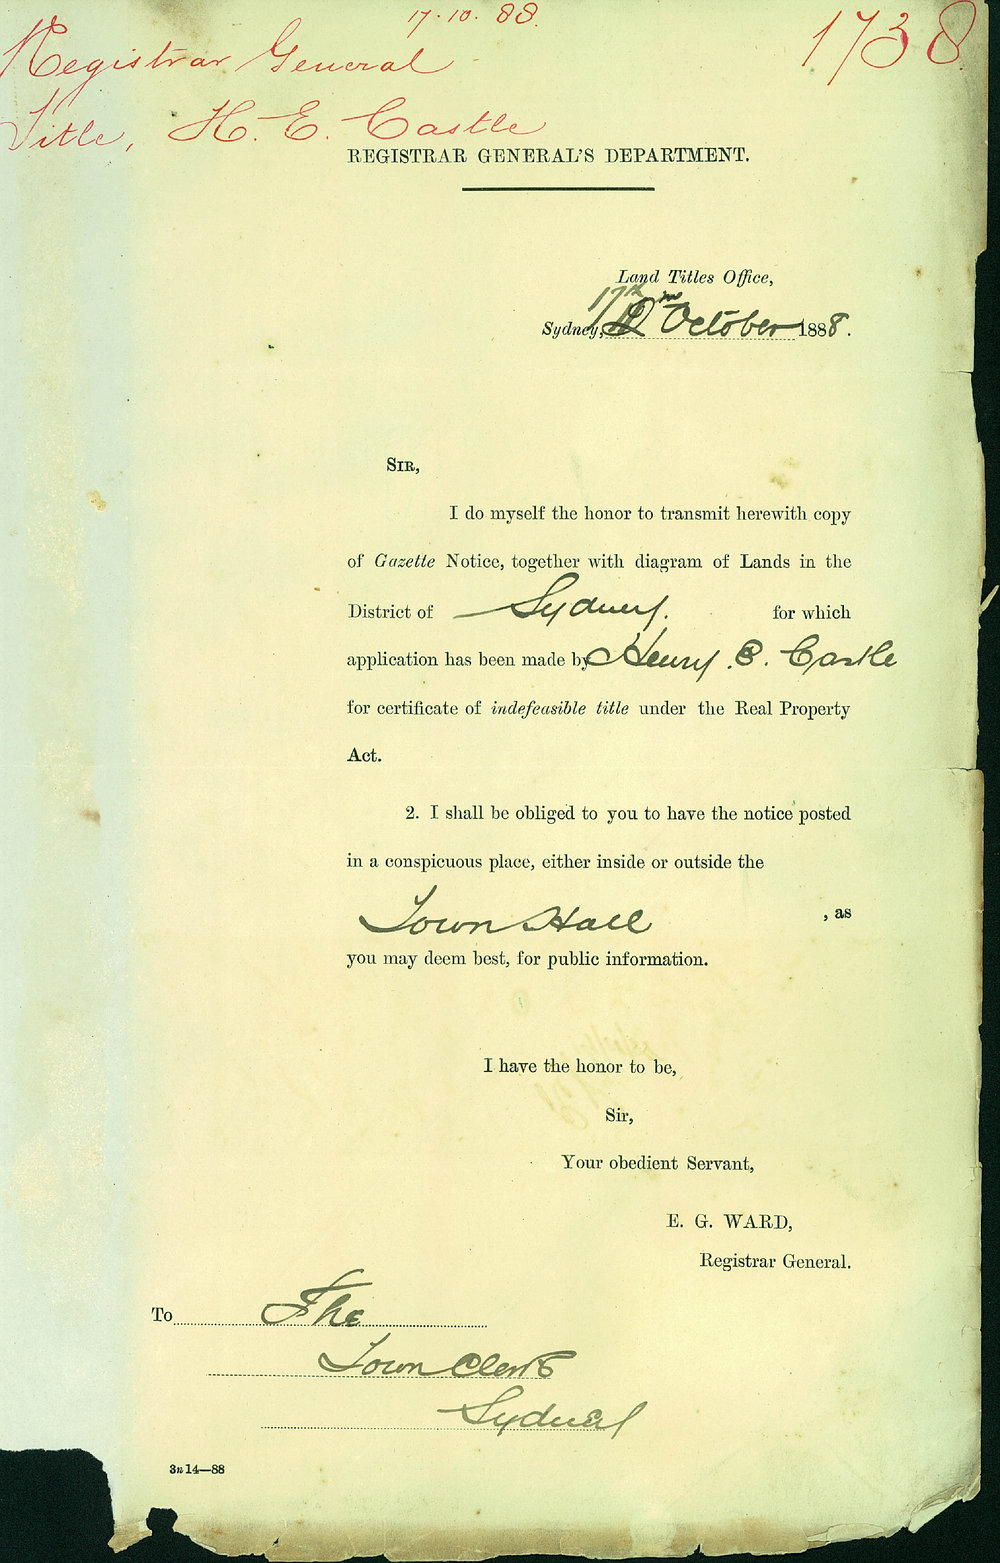 17.10.88.
1738.
Registrar General
Title, H. E. Castle
REGISTRAR GENERAL'S DEPARTMENT.
Land Titles Office,
17th
Sydney, October 1888.
SIR,
I do myself the honor to transmit herewith copy
of Gazette Notice, together with diagram of Lands in the
District of Sydney. for which
application has been made by Henry . E. Castle
for certificate of indefeasible title under the Real Property
Act.
2. I shall be obliged to you to have the notice posted
in a conspicuous place, either inside or outside the
Town Hall , as
you may deem best, for public information.
I have the honor to be,
Sir,
Your obedient Servant,
E. G. WARD,
Registrar General.
To The
Town Clerk
Sydney
3n 14—88